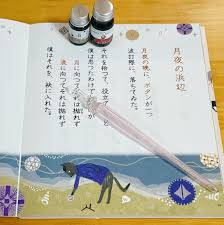 月夜の浜辺
月夜の晩に、ボタンが一つ
波打際に、落ちてゐた。
それを拾つて、役立て
僕は思つたわけで
月に向つてそれは抛れず
浪に向つてそれは抛れず
僕はそれを、袂に入れた。